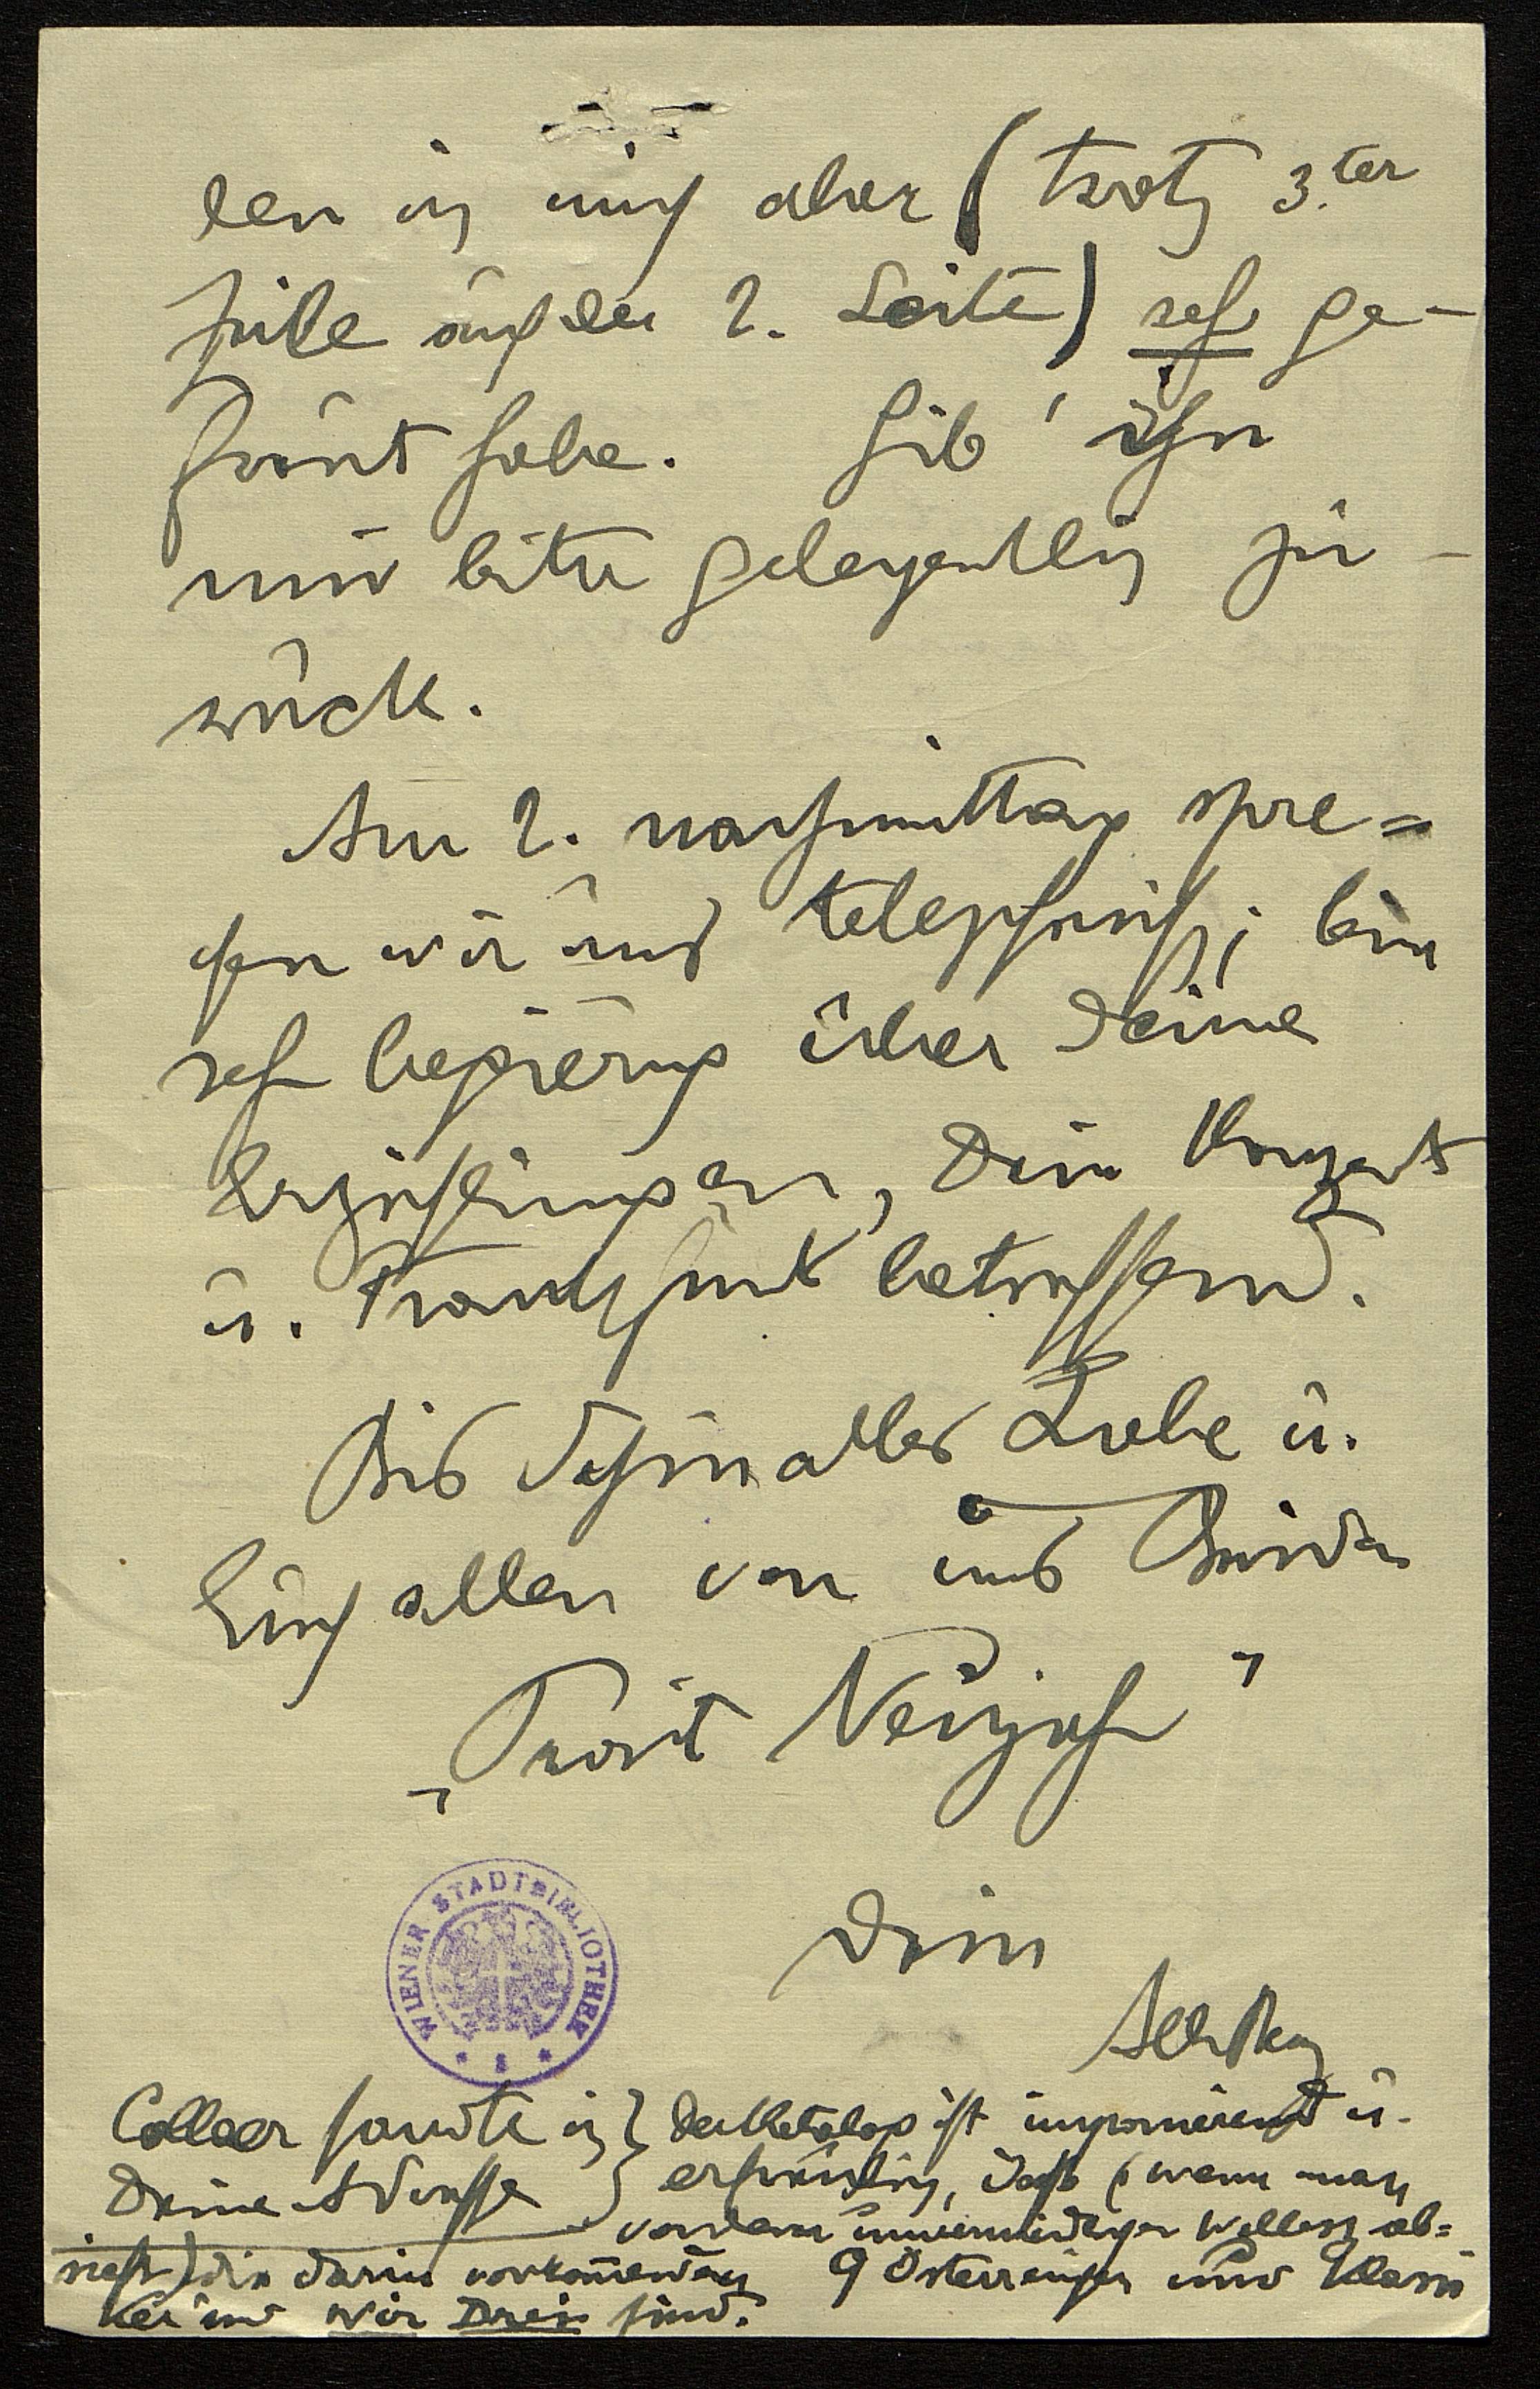 len ich mich aber (trotz 3.ter
Zeile auf der 2. Seite) sehr ge-
freut habe. Gib' ihn
mir bitte gelegentlich zu-
rück.
Am 2. nachmittag spre=
chen wir uns telephonisch; bin
sehr begierig über Deine
Erzählungen, Dein Konzert
u. Frankfurt betreffend.
Bis dahin alles Liebe u.
Euch allen von uns Beiden
„Prosit Neujahr"
Dein
Alban
WIENER STADTBIBLIOTHEK
Collaer sandte ich } Der Katalog ist imponierend u.
Deine Adresse } erfreulich, daß (wenn man
von dem unvermeidlichen Wellesz ab=
sieht) die darin vorkommenden 9 Österreicher nur Klassi
ker und wir Drei sind.